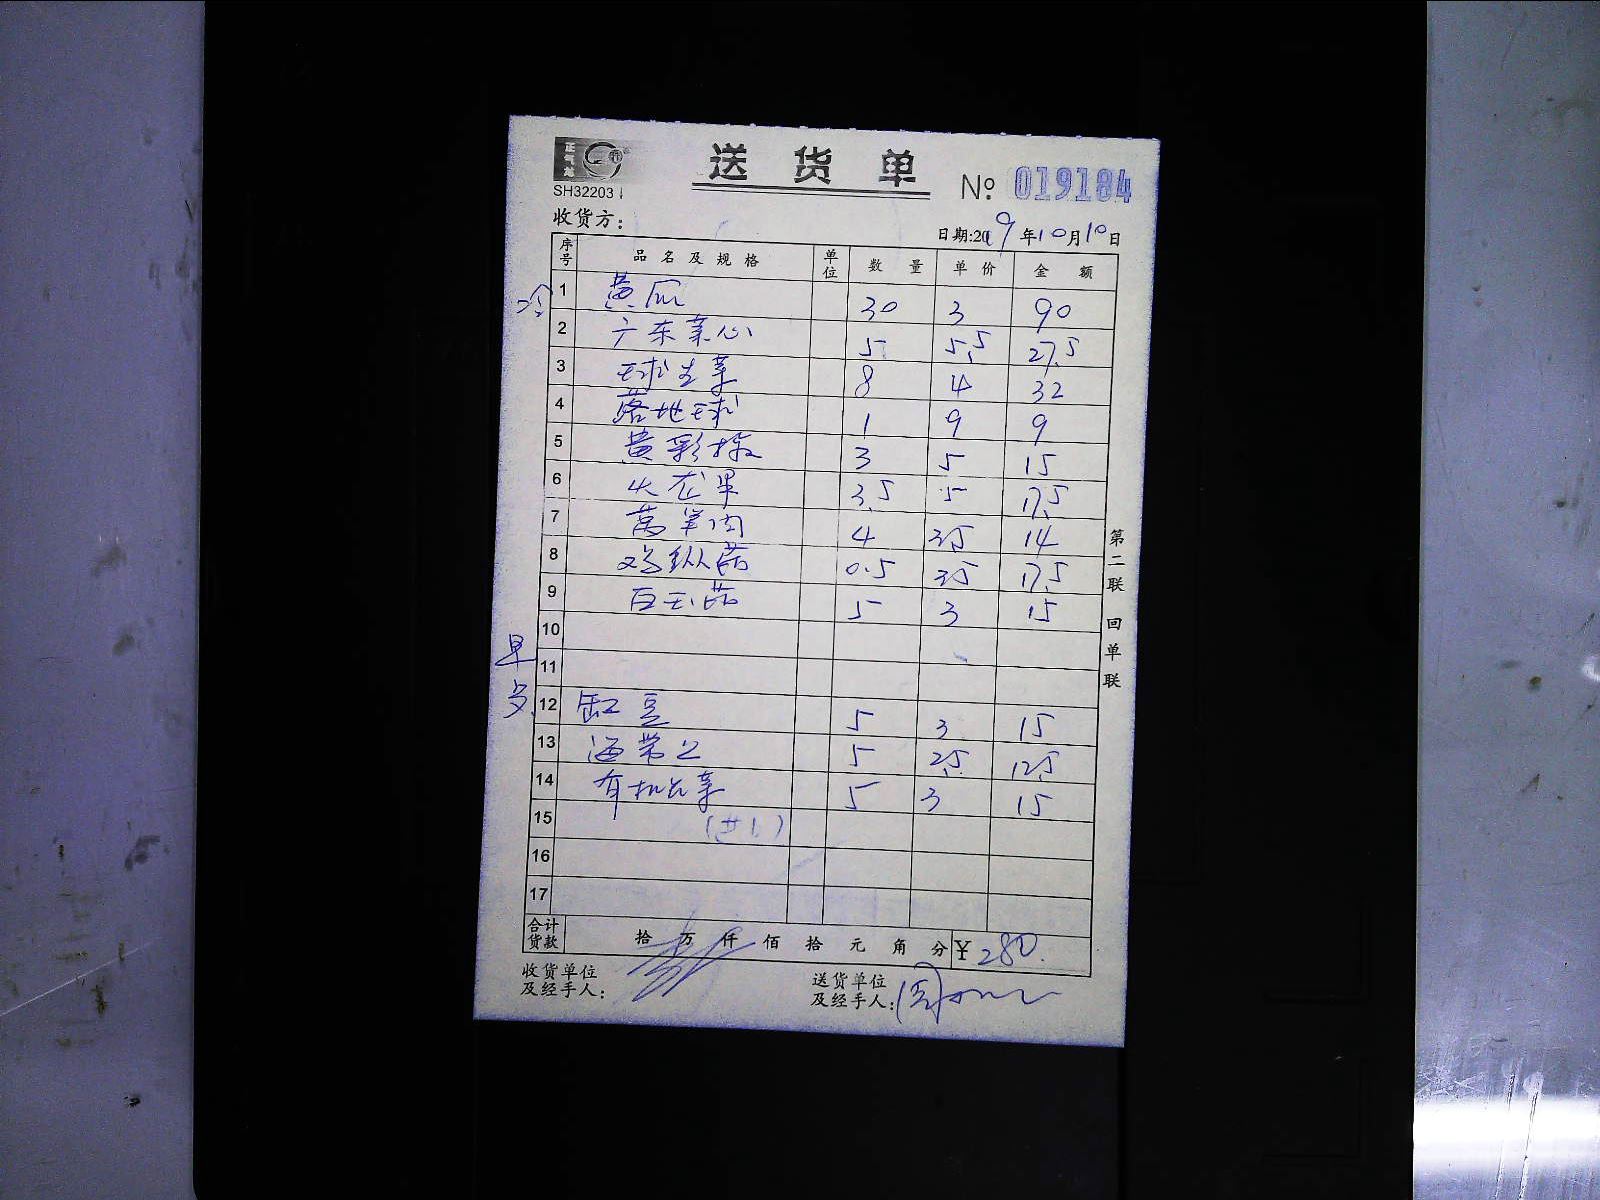 正气站
SH32203
送货单
№ 019184
收货方：
日期:2019年10月10日
序号 品名及规格 单位 数量 单价 金额
冷
1 黄瓜 30 3 90
2 广东菜心 5 5.5 27.5
3 球生菜 8 4 32
4 落地球 1 9 9
5 黄彩椒 3 5 15
6 火龙果 3.5 5 17.5
7 4 3.5 14
8 鸡枞菇 0.5 35 17.5
9 白玉菇 5 3 15
10
早
11
12 缸豆 5 3 15
13 海带 5 2.5 12.5
14 有机花菜 5 3 15
15
16
17
合计货款 拾 万 仟 佰 拾 元 角 分 ¥ 280.
收货单位及经手人：
送货单位及经手人：
第二联 回单联